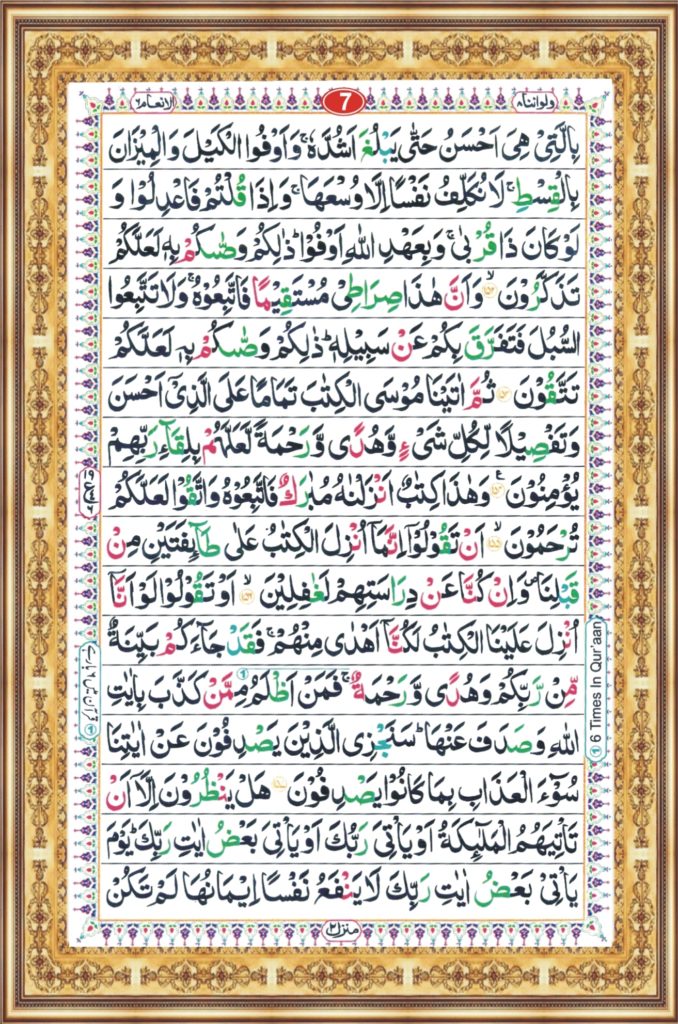 الانعام ٦
7
ولواننا ٨
بِالَّتِیْ هِیَ اَحْسَنُ حَتّٰی یَبْلُغَ اَشُدَّهٗ ۚ وَ اَوْفُوا الْكَیْلَ وَ الْمِیْزَانَ
بِالْقِسْطِ ۚ لَا نُكَلِّفُ نَفْسًا اِلَّا وُسْعَهَا ۚ وَ اِذَا قُلْتُمْ فَاعْدِلُوْا وَ
لَوْ كَانَ ذَا قُرْبٰی ۚ وَ بِعَهْدِ اللّٰهِ اَوْفُوْا ؕ ذٰلِكُمْ وَصّٰىكُمْ بِهٖ لَعَلَّكُمْ
تَذَكَّرُوْنَ ۙ﴿۱۵۲﴾ وَ اَنَّ هٰذَا صِرَاطِیْ مُسْتَقِیْمًا فَاتَّبِعُوْهُ ۚ وَ لَا تَتَّبِعُوا
السُّبُلَ فَتَفَرَّقَ بِكُمْ عَنْ سَبِیْلِهٖ ؕ ذٰلِكُمْ وَصّٰىكُمْ بِهٖ لَعَلَّكُمْ
تَتَّقُوْنَ ﴿۱۵۳﴾ ثُمَّ اٰتَیْنَا مُوْسَی الْكِتٰبَ تَمَامًا عَلَی الَّذِیْۤ اَحْسَنَ
وَ تَفْصِیْلًا لِّكُلِّ شَیْءٍ وَّ هُدًی وَّ رَحْمَةً لَّعَلَّهُمْ بِلِقَآءِ رَبِّهِمْ
یُؤْمِنُوْنَ ﴿۱۵۴﴾ ع وَ هٰذَا كِتٰبٌ اَنْزَلْنٰهُ مُبٰرَكٌ فَاتَّبِعُوْهُ وَ اتَّقُوْا لَعَلَّكُمْ
تُرْحَمُوْنَ ۙ﴿۱۵۵﴾ اَنْ تَقُوْلُوْۤا اِنَّمَاۤ اُنْزِلَ الْكِتٰبُ عَلٰی طَآىِٕفَتَیْنِ مِنْ
قَبْلِنَا ۪ وَ اِنْ كُنَّا عَنْ دِرَاسَتِهِمْ لَغٰفِلِیْنَ ۙ﴿۱۵۶﴾ اَوْ تَقُوْلُوْا لَوْ اَنَّاۤ
اُنْزِلَ عَلَیْنَا الْكِتٰبُ لَكُنَّاۤ اَهْدٰی مِنْهُمْ ۚ فَقَدْ جَآءَكُمْ بَیِّنَةٌ
مِّنْ رَّبِّكُمْ وَ هُدًی وَّ رَحْمَةٌ ۚ فَمَنْ اَظْلَمُ مِمَّنْ كَذَّبَ بِاٰیٰتِ
اللّٰهِ وَ صَدَفَ عَنْهَا ؕ سَنَجْزِی الَّذِیْنَ یَصْدِفُوْنَ عَنْ اٰیٰتِنَا
سُوْٓءَ الْعَذَابِ بِمَا كَانُوْا یَصْدِفُوْنَ ﴿۱۵۷﴾ هَلْ یَنْظُرُوْنَ اِلَّاۤ اَنْ
تَاْتِیَهُمُ الْمَلٰٓىِٕكَةُ اَوْ یَاْتِیَ رَبُّكَ اَوْ یَاْتِیَ بَعْضُ اٰیٰتِ رَبِّكَ ؕ یَوْمَ
یَاْتِیْ بَعْضُ اٰیٰتِ رَبِّكَ لَا یَنْفَعُ نَفْسًا اِیْمَانُهَا لَمْ تَكُنْ
① 6 Times In Qur'aan
منزل ٢